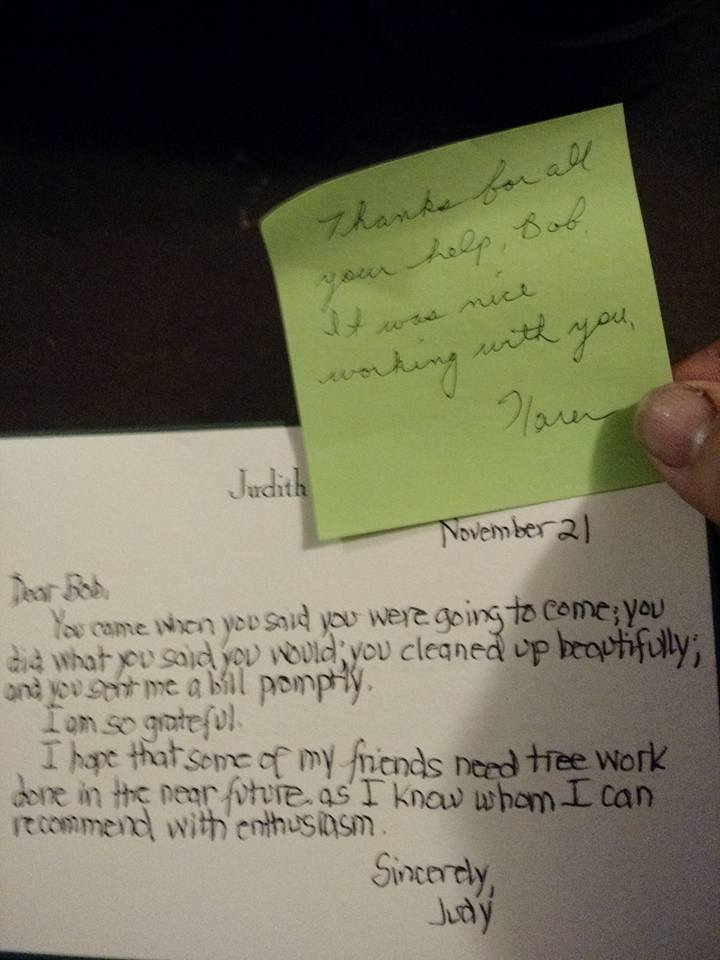 Thanks for all
your help, Bob.
It was nice
working with you.
Karen
Judith
November 21
Dear Bob,
You came when you said you were going to come; you
did what you said you would; you cleaned up beautifully;
and you sent me a bill promptly.
I am so grateful.
I hope that some of my friends need tree work
done in the near future as I know whom I can
recommend with enthusiasm.
Sincerely,
Judy